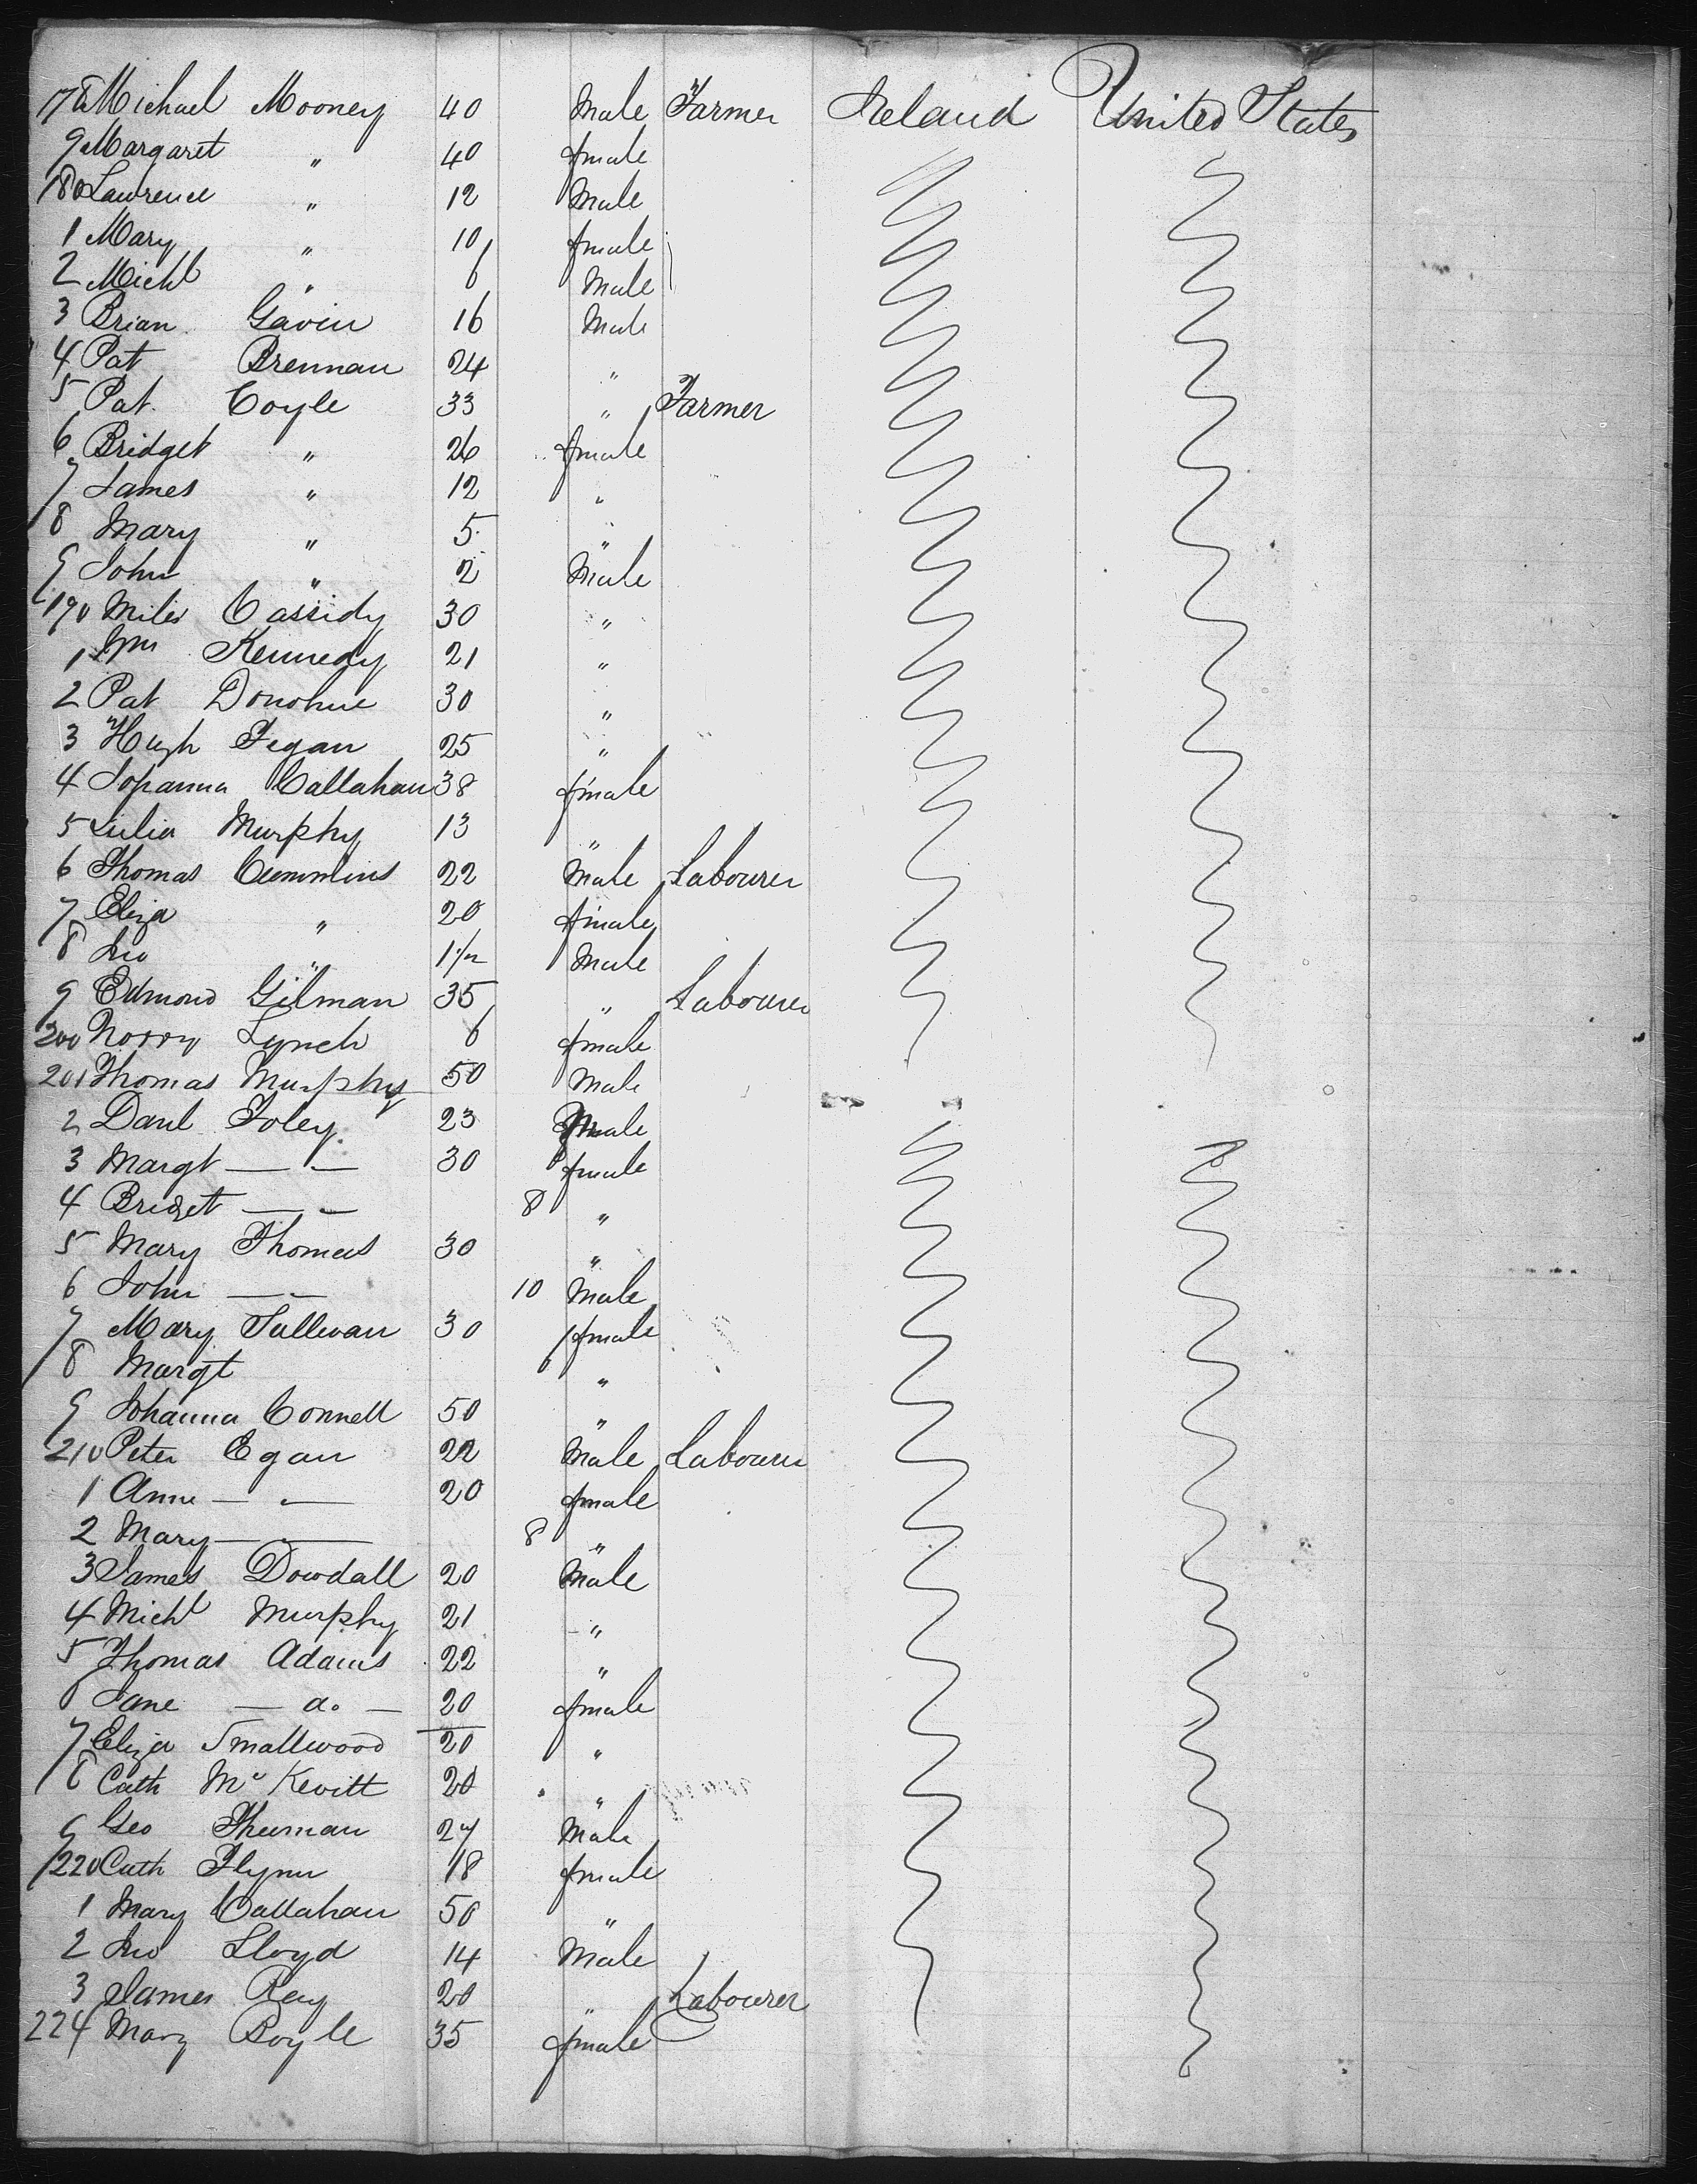 178 Michael Mooney 40 Male Farmer Ireland United States
9 Margaret " 40 female
180 Lawrence " 12 Male
1 Mary " 10 female
2 Michl " 6 Male
3 Brian Gavin 16 Male
4 Pat Brennan 24 "
5 Pat Coyle 33 " Farmer
6 Bridget " 26 female
7 James " 12 "
8 Mary " 5 "
9 John " 2 Male
190 Miles Cassidy 30 "
1 Wm Kennedy 21 "
2 Pat Donohue 30 "
3 Hugh Fegan 25 "
4 Johanna Callahan 38 female
5 Julia Murphy 13 "
6 Thomas Cummins 22 Male Labourer
7 Eliza " 20 female
8 Jno " 1 1/2 Male
9 Edmond Gilman 35 " Labourer
200 Norry Lynch 6 female
201 Thomas Murphy 50 Male
2 Danl Foley 23 Male
3 Margt — " — 30 female
4 Bridget — " — 8 "
5 Mary Thomas 30 "
6 John — " — 10 Male
7 Mary Sullivan 30 female
8 Margt 6 "
9 Johanna Connell 50 "
210 Peter Egan 22 Male Labourer
1 Anne — " — 20 female
2 Mary — " — 8 "
3 James Dowdall 20 Male
4 Michl Murphy 21 "
5 Thomas Adams 22 "
6 Jane — do — 20 female
7 Eliza Smallwood 20 "
8 Cath McKevitt 20 "
9 Geo 27 Male
220 Cath Flynn 18 female
1 Mary Callahan 50 "
2 Jno Lloyd 14 Male
3 James Ray 20 " Labourer
224 Mary Boyle 35 female